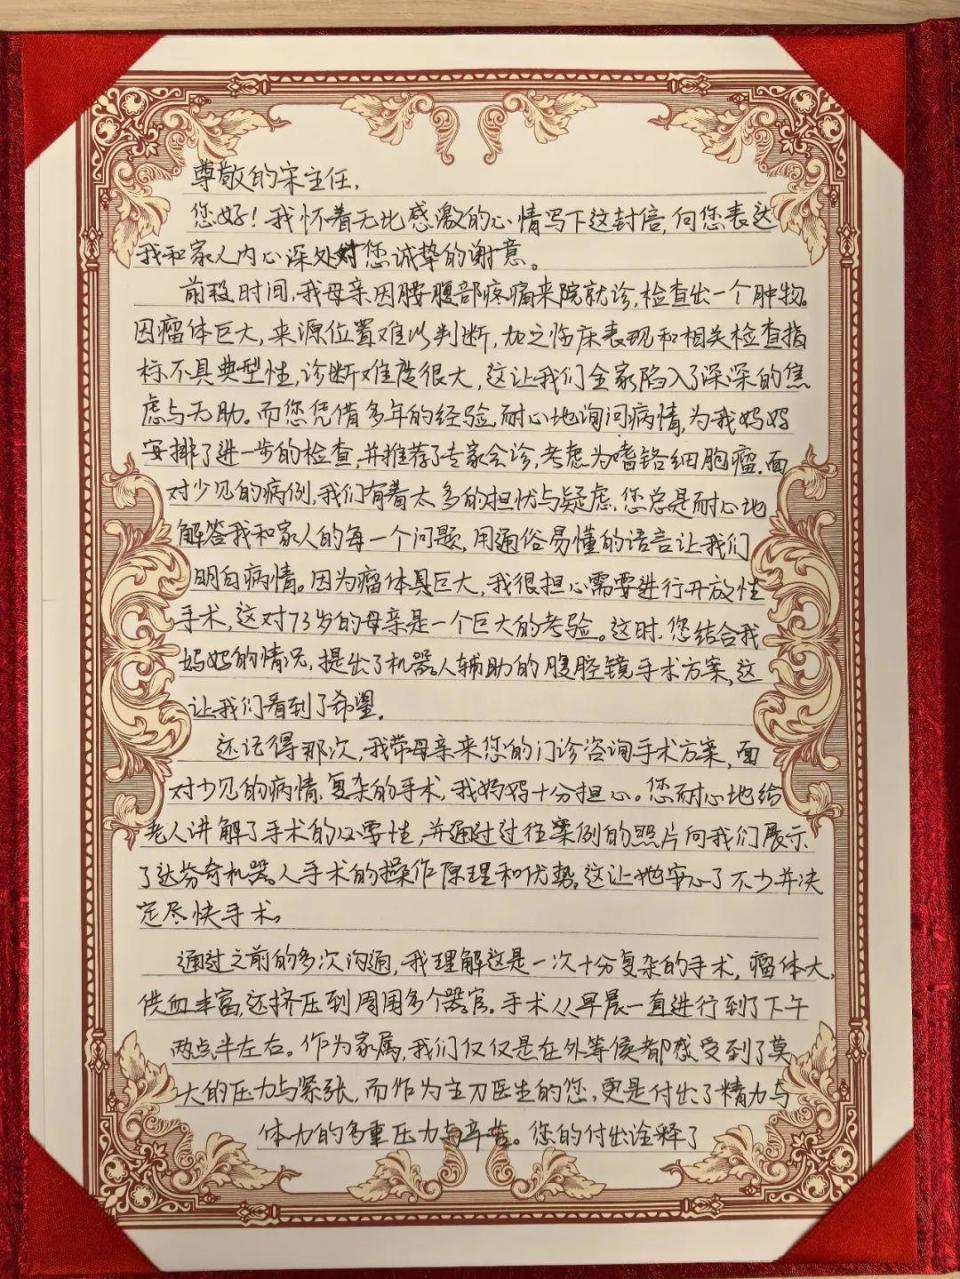 尊敬的宋主任，
您好！我怀着无比感激的心情写下这封信，向您表达
我和家人内心深处对您诚挚的谢意。
前段时间，我母亲因腰腹部疼痛来院就诊，检查出一个肿物。
因瘤体巨大，来源位置难以判断，加之临床表现和相关检查指
标不具典型性，诊断难度很大，这让我们全家陷入了深深的焦
虑与无助。而您凭借多年的经验，耐心地询问病情，为我妈妈
安排了进一步的检查，并推荐了专家会诊，考虑为嗜铬细胞瘤。面
对少见的病例，我们有着太多的担忧与疑虑，您总是耐心地
解答我和家人的每一个问题，用通俗易懂的语言让我们
明白病情。因为瘤体具巨大，我很担心需要进行开放性
手术，这对73岁的母亲是一个巨大的考验。这时，您结合我
妈妈的情况，提出了机器人辅助的腹腔镜手术方案，这
让我们看到了希望。
还记得那次，我带母亲来您的门诊咨询手术方案，面
对少见的病情，复杂的手术，我妈妈十分担心。您耐心地给
老人讲解了手术的必要性，并通过过往案例的照片向我们展示
了达芬奇机器人手术的操作原理和优势，这让她安心了不少并决
定尽快手术。
通过之前的多次沟通，我理解这是一次十分复杂的手术，瘤体大，
供血丰富，还挤压到周围多个器官。手术从早晨一直进行到了下午
两点半左右。作为家属，我们仅仅是在外等候都感受到了莫
大的压力与紧张，而作为主刀医生的您，更是付出了精力与
体力的多重压力与辛苦。您的付出诠释了